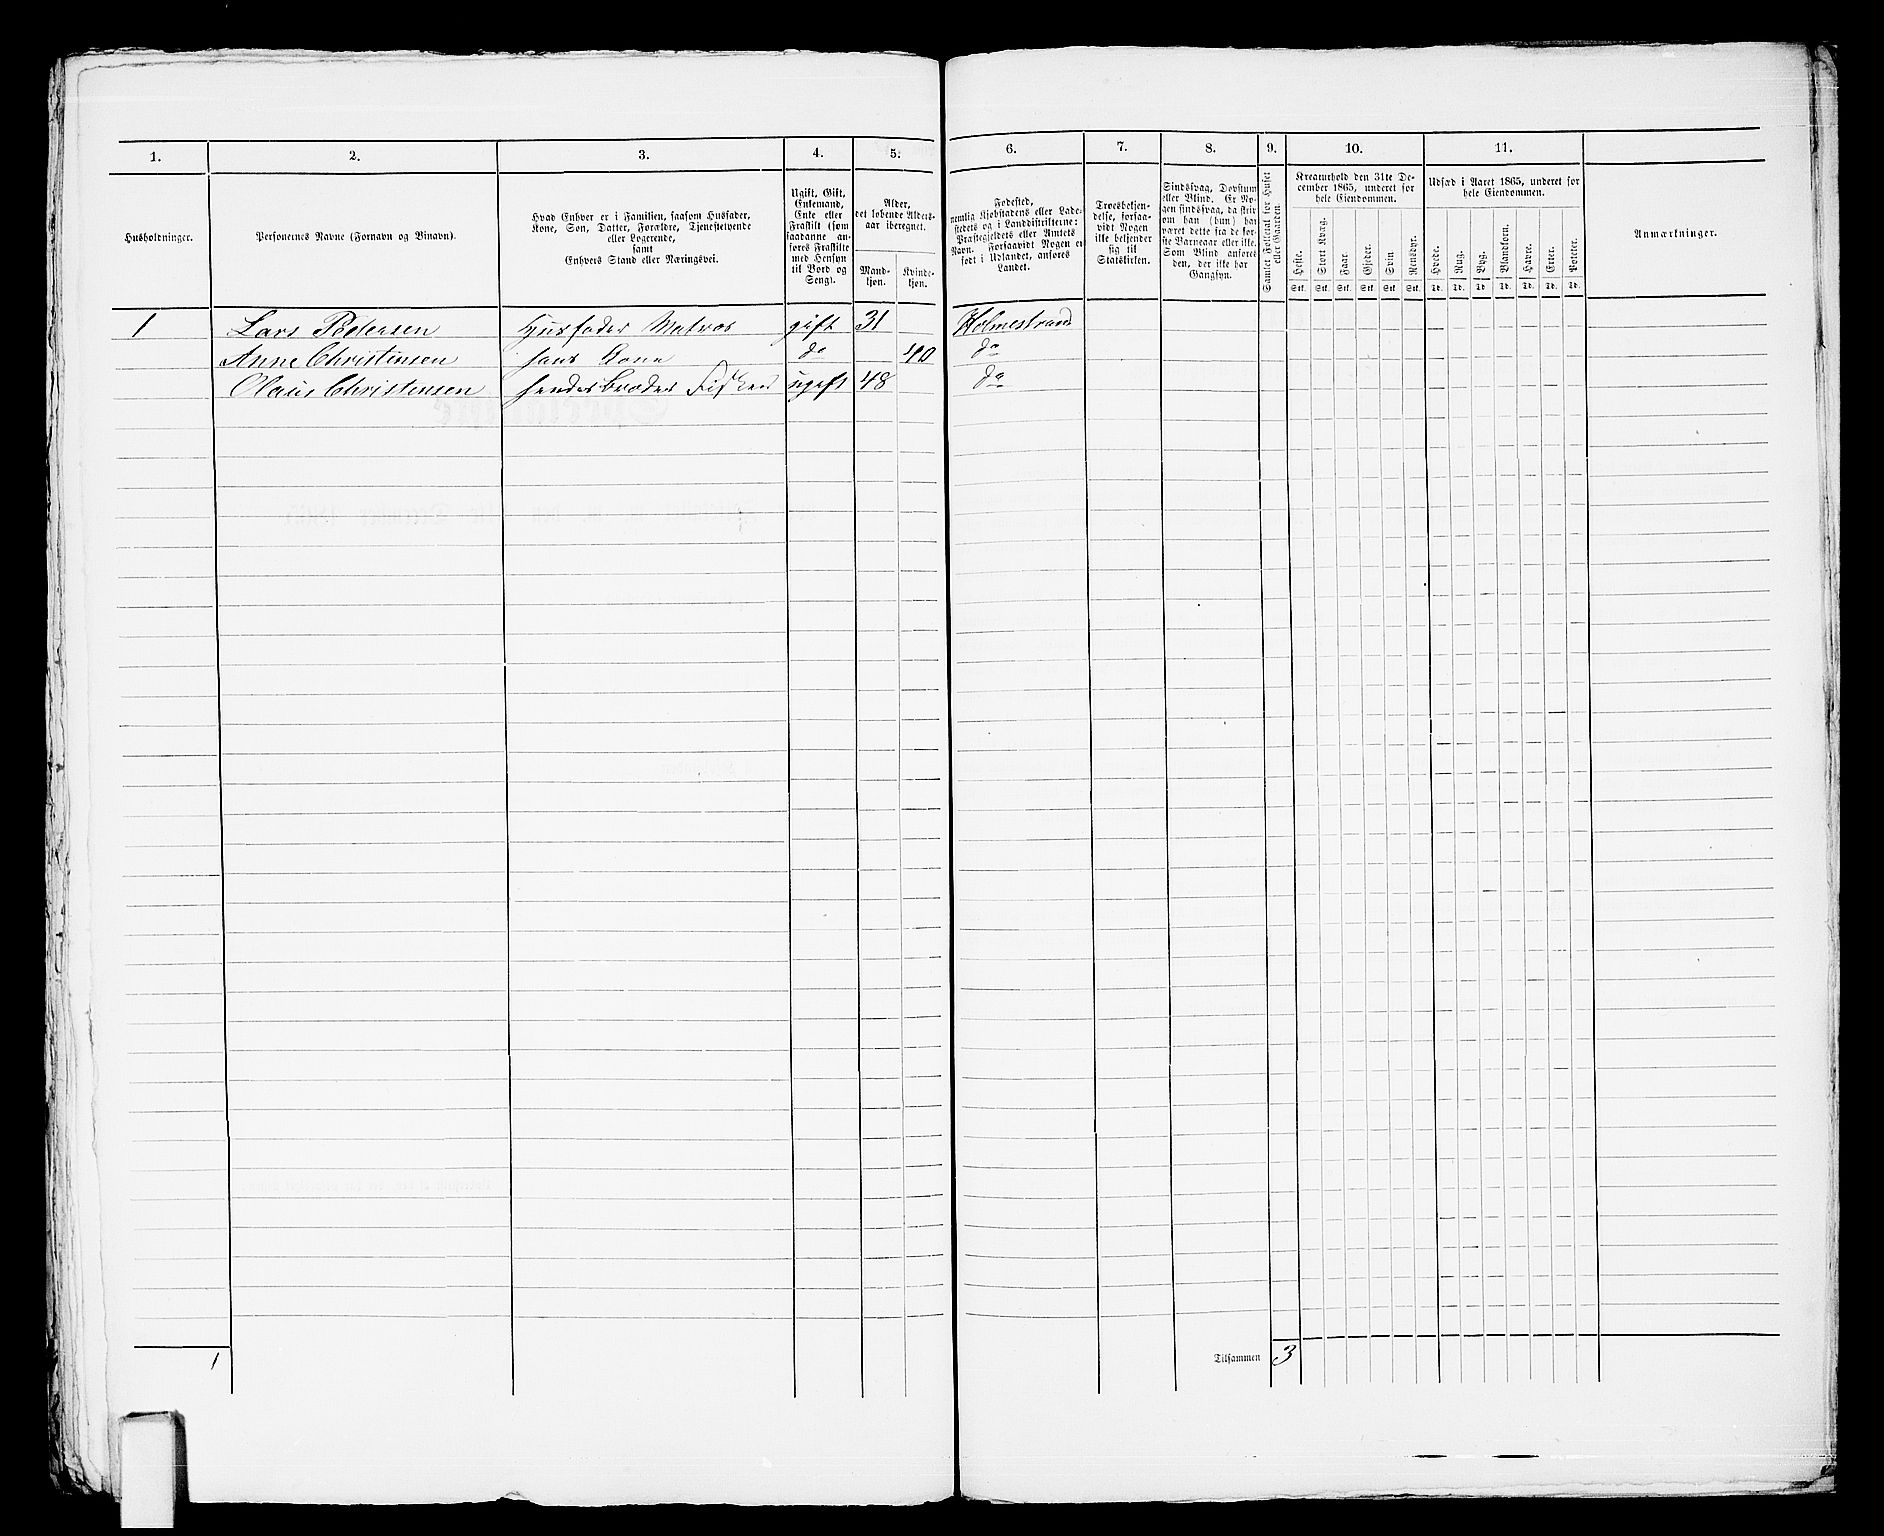 1. 2. 3. 4. 5. 6. 7. 8. 9. 10. 11.
Husholdninger.
Personernes Navne (Fornavn og Binavn).
Hvad Enhver er i Familien, saasom Husfader,
Kone, Søn, Datter, Forældre, Tjenestetyende
eller Logerende,
samt
Enhvers Stand eller Næringsvei.
Ugift, Gift,
Enkemand,
Enke eller
Fraskilt (som
saadanne an-
føres Fraskilte
med Hensyn
til Bord og
Seng).
Alder,
det løbende Alders-
aar iberegnet.
Mand-
kjøn.
Kvinde-
kjøn.
Fødested,
nemlig Kjøbstadens eller Lade-
stedets og i Landdistrikterne:
Præstegjeldets eller Amtets
Navn. Forsaavidt Nogen er
født i Udlandet, anføres
Landet.
Troesbekjen-
delse, forsaa-
vidt Nogen
ikke bekjender
sig til
Statskirken.
Sindssvag, Døvstum
eller Blind. Er No-
gen sindssvag, da skri-
ves om han (hun) har
været dette fra de før-
ste Barneaar eller ikke.
Som Blind anføres
den, der ikke har
Gangsyn.
Samlet Folketal for Huset
eller Gaarden.
Kreaturhold den 31te De-
cember 1865, underet for
hele Eiendommen.
Heste. Stort Kvæg. Faar. Gjeder. Svin Rensdyr.
Stk. Stk. Stk. Stk. Stk. Stk.
Udsæd i Aaret 1865, underet for
hele Eiendommen.
Hvede. Rug. Byg. Blandkorn. Havre. Erter. Poteter.
Td. Td. Td. Td. Td. Td. Td.
Anmærkninger.
1 Lars Pedersen Husfader Matros gift 31 Holmestrand
Anne Christensen hans Kone do 40 do
Olaus Christensen hendes broder Fisker ugift 48 do
1 Tilsammen 3